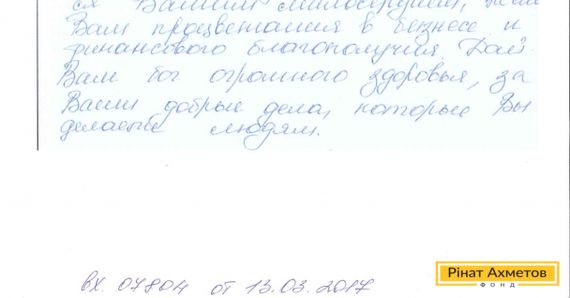 ся Вашим милосердием, 
Вам процветания в бизнесе и
финансового благополучия. Дай
Вам бог огромного здоровья, за
Ваши добрые дела, которые Вы
делаете людям.
вх. 07804 от 13.03.2017
Рінат Ахметов
ФОНД